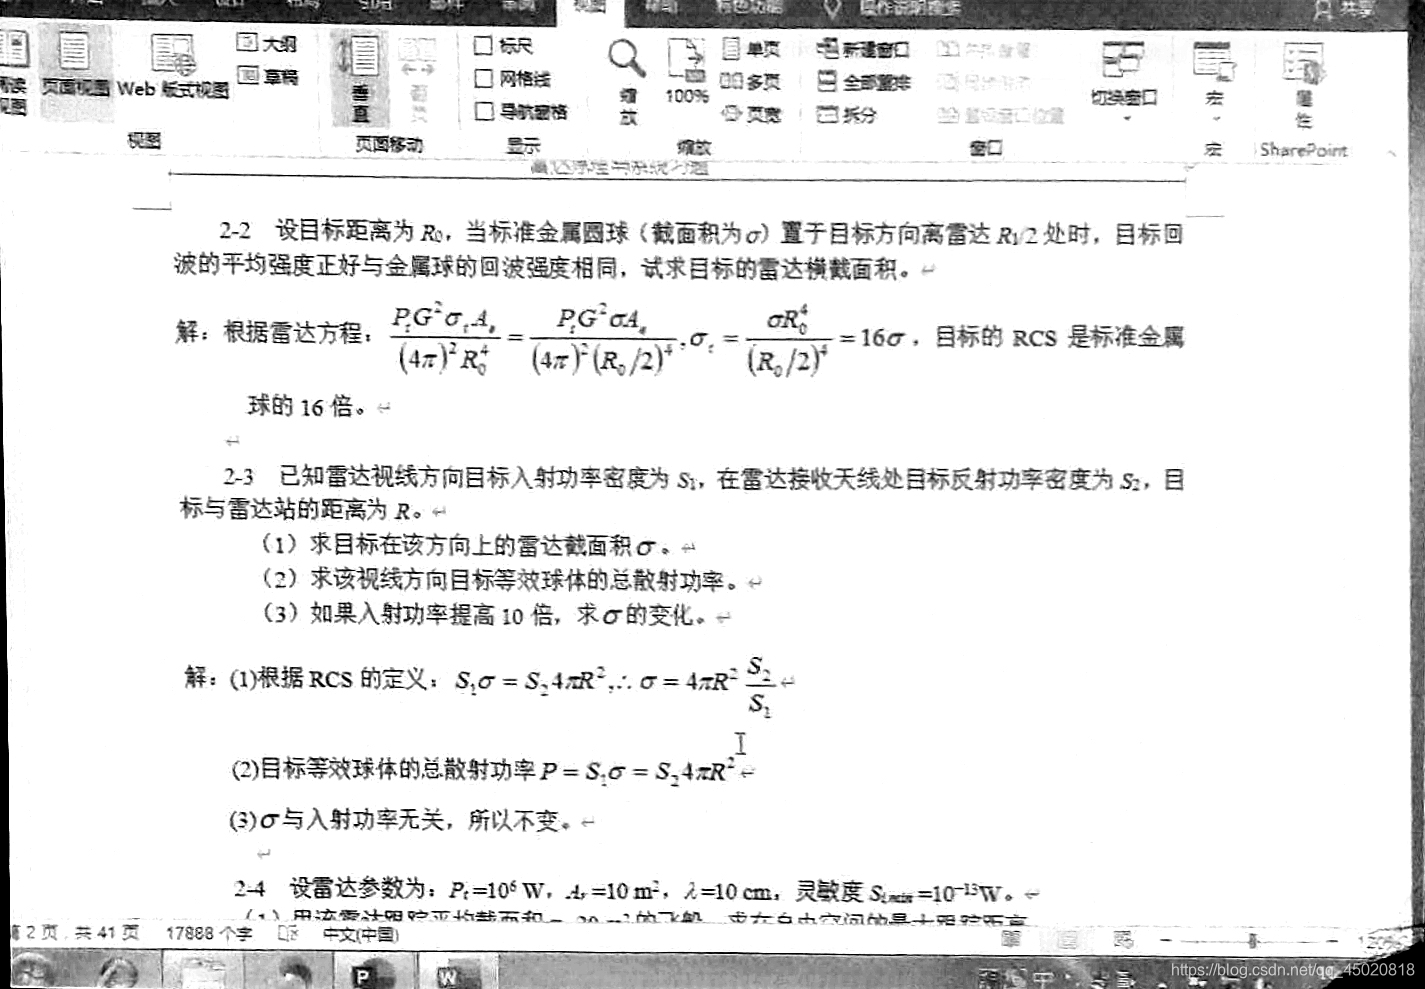 视图 帮助 特色功能 操作说明搜索 共享
大纲 标尺 单页 新建窗口
草稿 网格线 多页 全部重排
页面视图 Web 版式视图 垂直 导航窗格 缩放 100% 页宽 拆分 切换窗口 宏 属性
视图 页面移动 显示 缩放 窗口 宏 SharePoint
雷达原理与系统习题
2-2 设目标距离为 R₀，当标准金属圆球（截面积为σ）置于目标方向离雷达 R₁/2 处时，目标回
波的平均强度正好与金属球的回波强度相同，试求目标的雷达横截面积。
解：根据雷达方程：\frac{P_t G^2 σ_t A_e}{(4π)^2 R_0^4} = \frac{P_t G^2 σ A_e}{(4π)^2 (R_0/2)^4}, σ_t = \frac{σR_0^4}{(R_0/2)^4} = 16σ，目标的 RCS 是标准金属
球的 16 倍。
2-3 已知雷达视线方向目标入射功率密度为 S₁，在雷达接收天线处目标反射功率密度为 S₂，目
标与雷达站的距离为 R。
（1）求目标在该方向上的雷达截面积σ。
（2）求该视线方向目标等效球体的总散射功率。
（3）如果入射功率提高 10 倍，求σ的变化。
解：(1)根据 RCS 的定义：S₁σ = S₂4πR², ∴ σ = 4πR² \frac{S_2}{S_1}
(2)目标等效球体的总散射功率 P = S₁σ = S₂4πR²
(3)σ与入射功率无关，所以不变。
2-4 设雷达参数为：Pₜ =10⁶ W，Aᵣ =10 m²，λ =10 cm，灵敏度 S_{i min} =10⁻¹³W。
（1）用该雷达跟踪平均截面积σ=20 m² 的飞船，求在自由空间的最大跟踪距离
第 2 页，共 41 页 17888 个字 中文(中国) 120%
https://blog.csdn.net/qq_45020818